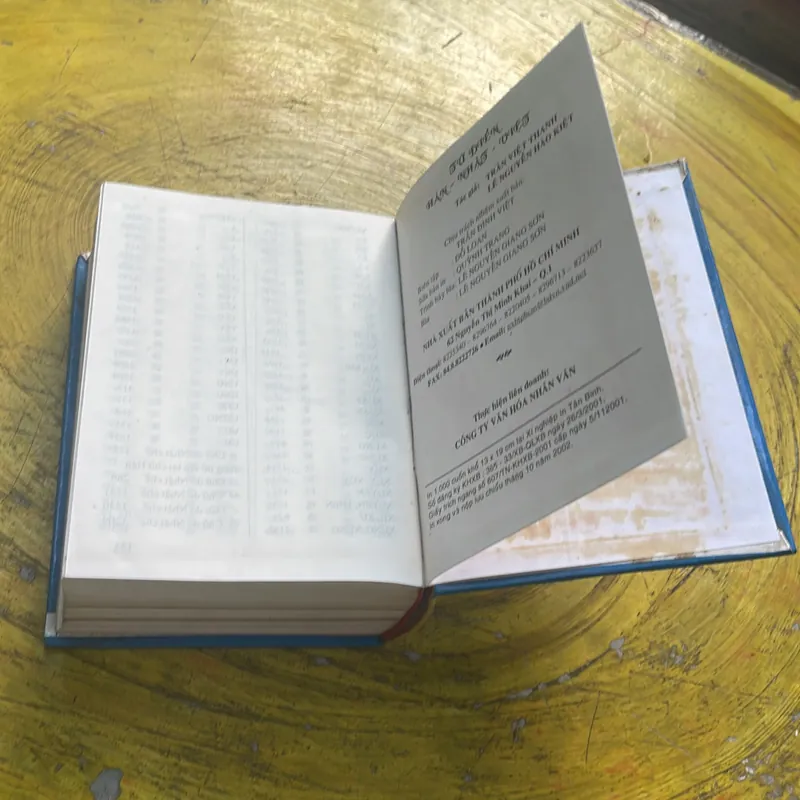 TỪ ĐIỂN
HÁN - NHẬT - VIỆT
Tác giả: TRẦN VIỆT THANH
LÊ NGUYỄN HÀO KIỆT
Chịu trách nhiệm xuất bản:
TRẦN ĐÌNH VIỆT
Biên tập : ĐỖ LOAN
Sửa bản in : QUỲNH TRANG
Trình bày bìa : LÊ NGUYỄN GIANG SƠN
Bìa : LÊ NGUYỄN GIANG SƠN
NHÀ XUẤT BẢN THÀNH PHỐ HỒ CHÍ MINH
62 Nguyễn Thị Minh Khai - Q.1
Điện thoại: 8225340 - 8296764 - 8220405 - 8296713 - 8223637
FAX: 84.8.8222726 • Email:
Thực hiện liên doanh:
CÔNG TY VĂN HÓA NHÂN VĂN
In 1.000 cuốn khổ 13 x 19 cm tại Xí nghiệp in Tân Bình.
Số đăng ký KHXB : 395 - 33/XB-QLXB ngày 26/3/2001.
Giấy trích ngang số 607/TN-KHXB-2001 cấp ngày 5/112001.
In xong và nộp lưu chiểu tháng 10 năm 2002.